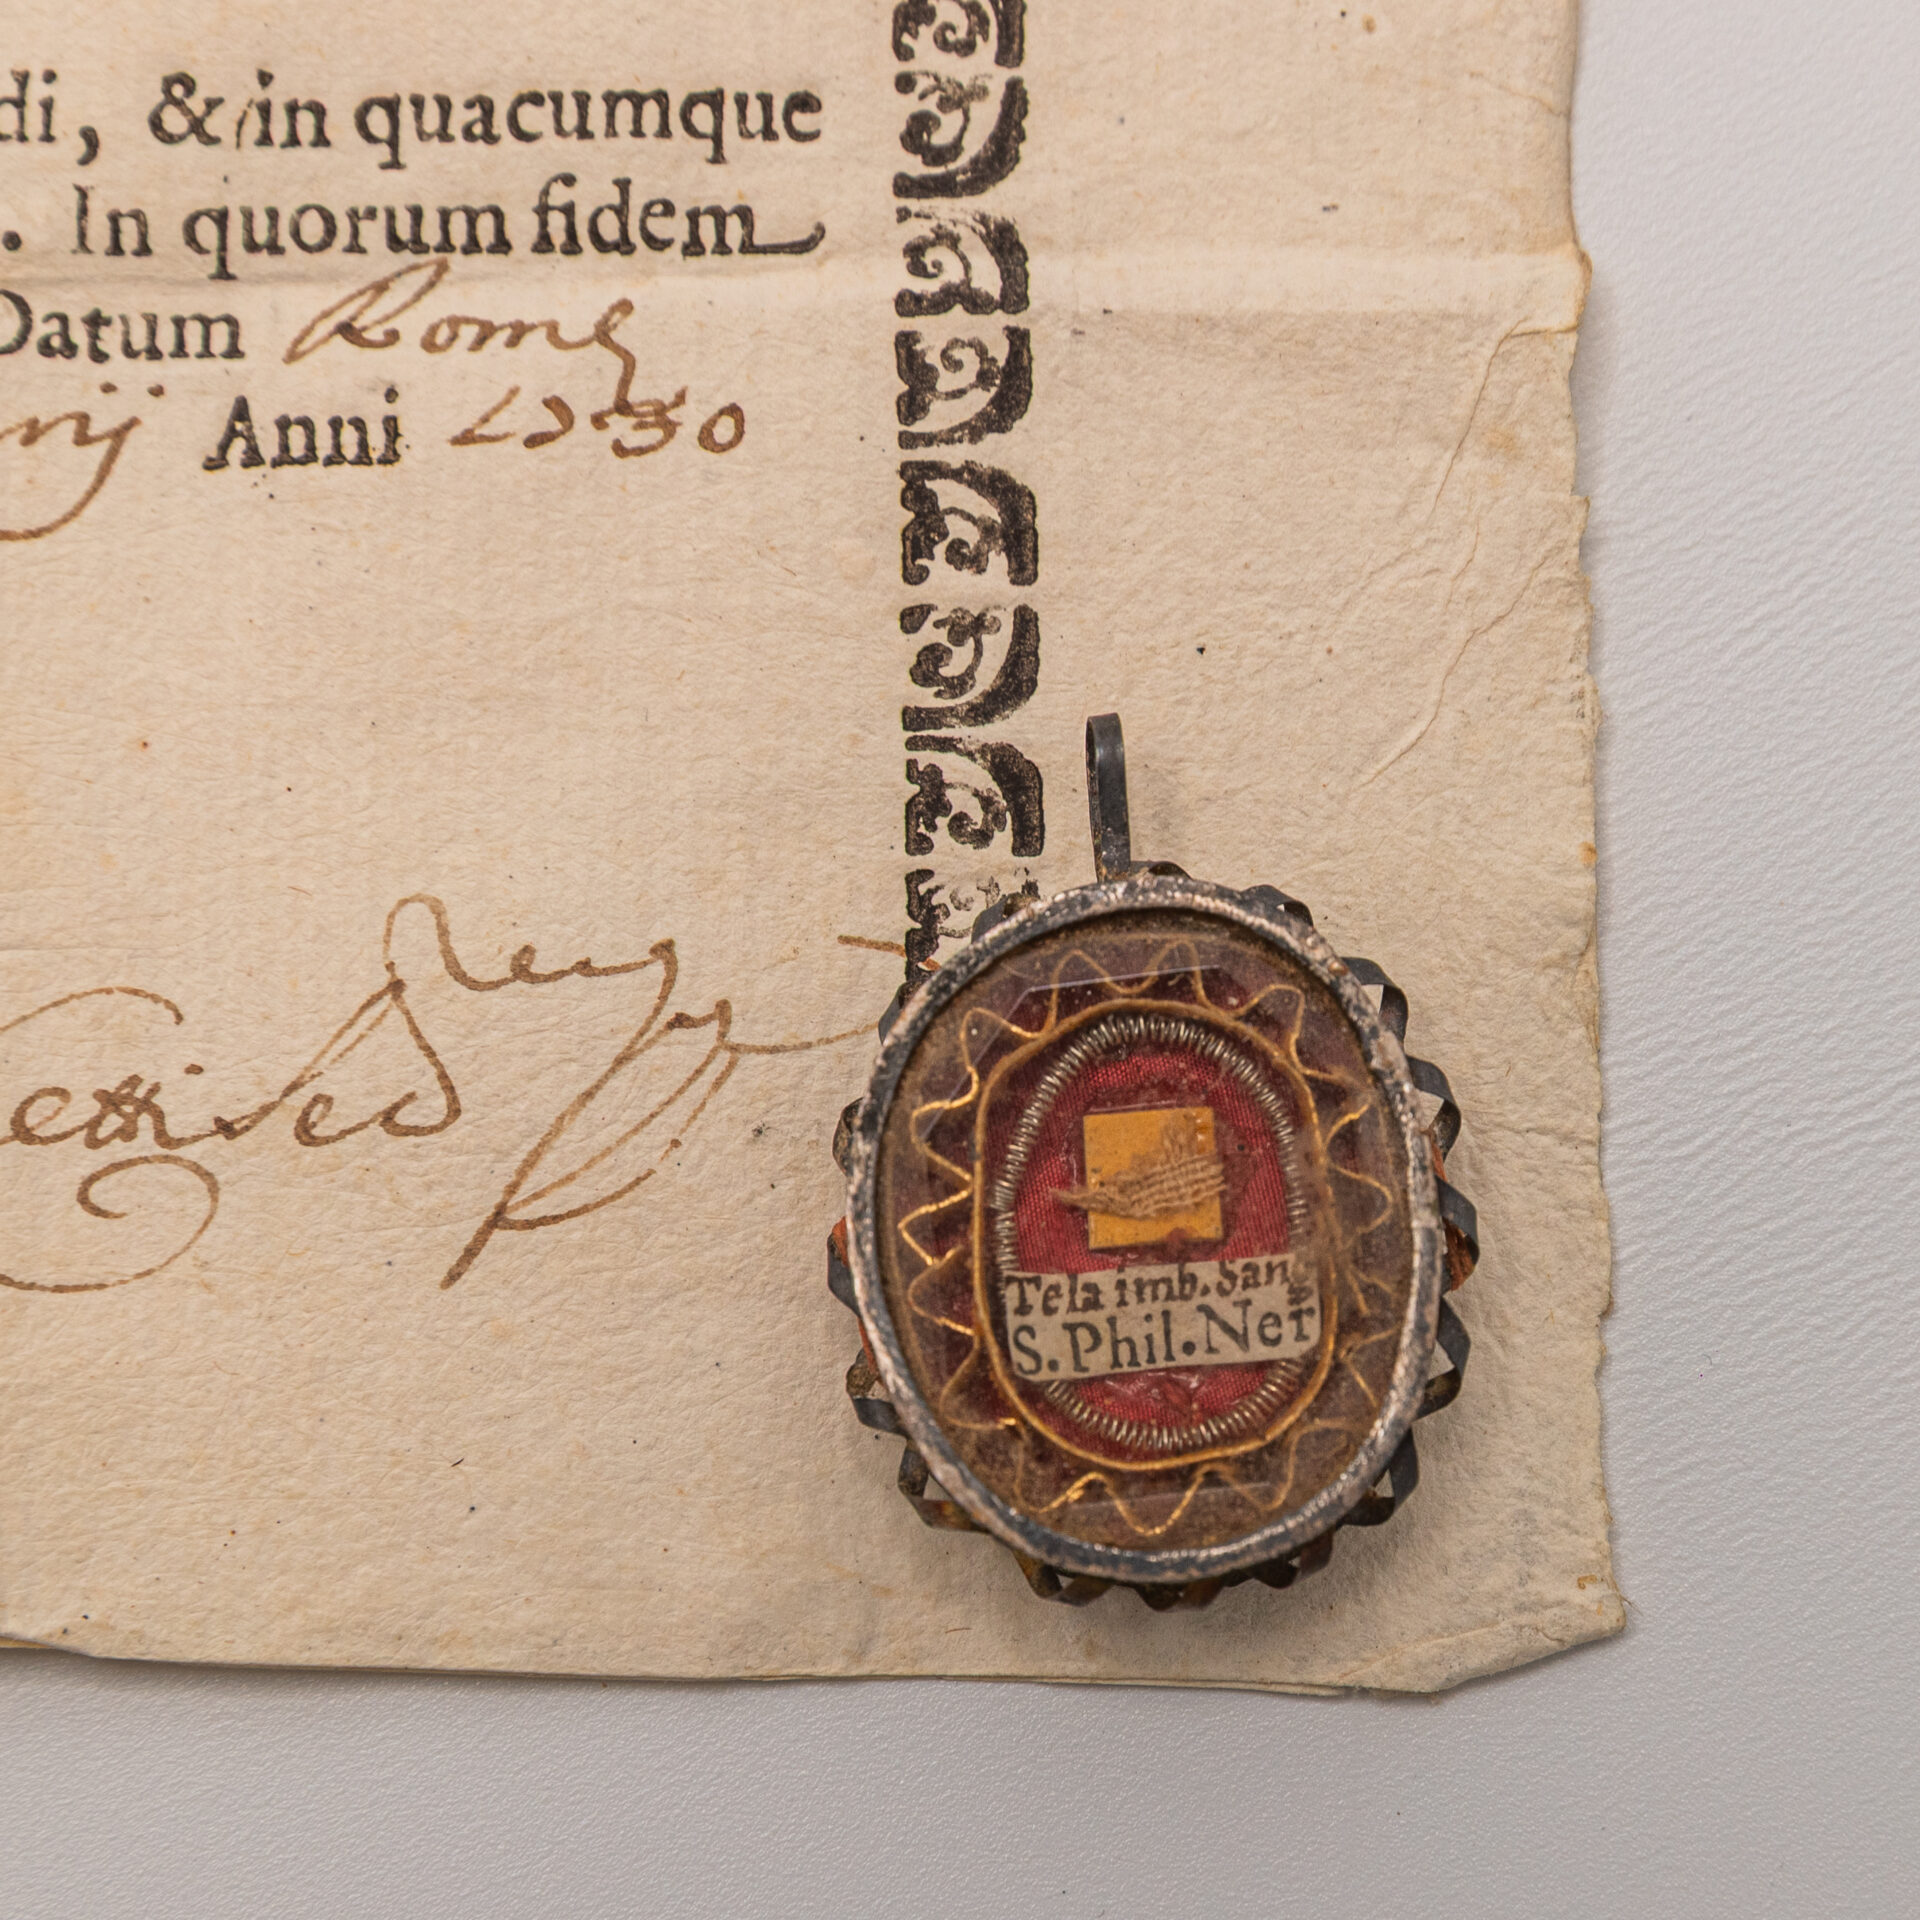 di, & in quacumque
. In quorum fidem
Datum Rome
Anni 1730
Tela imb. Sang
S. Phil. Ner